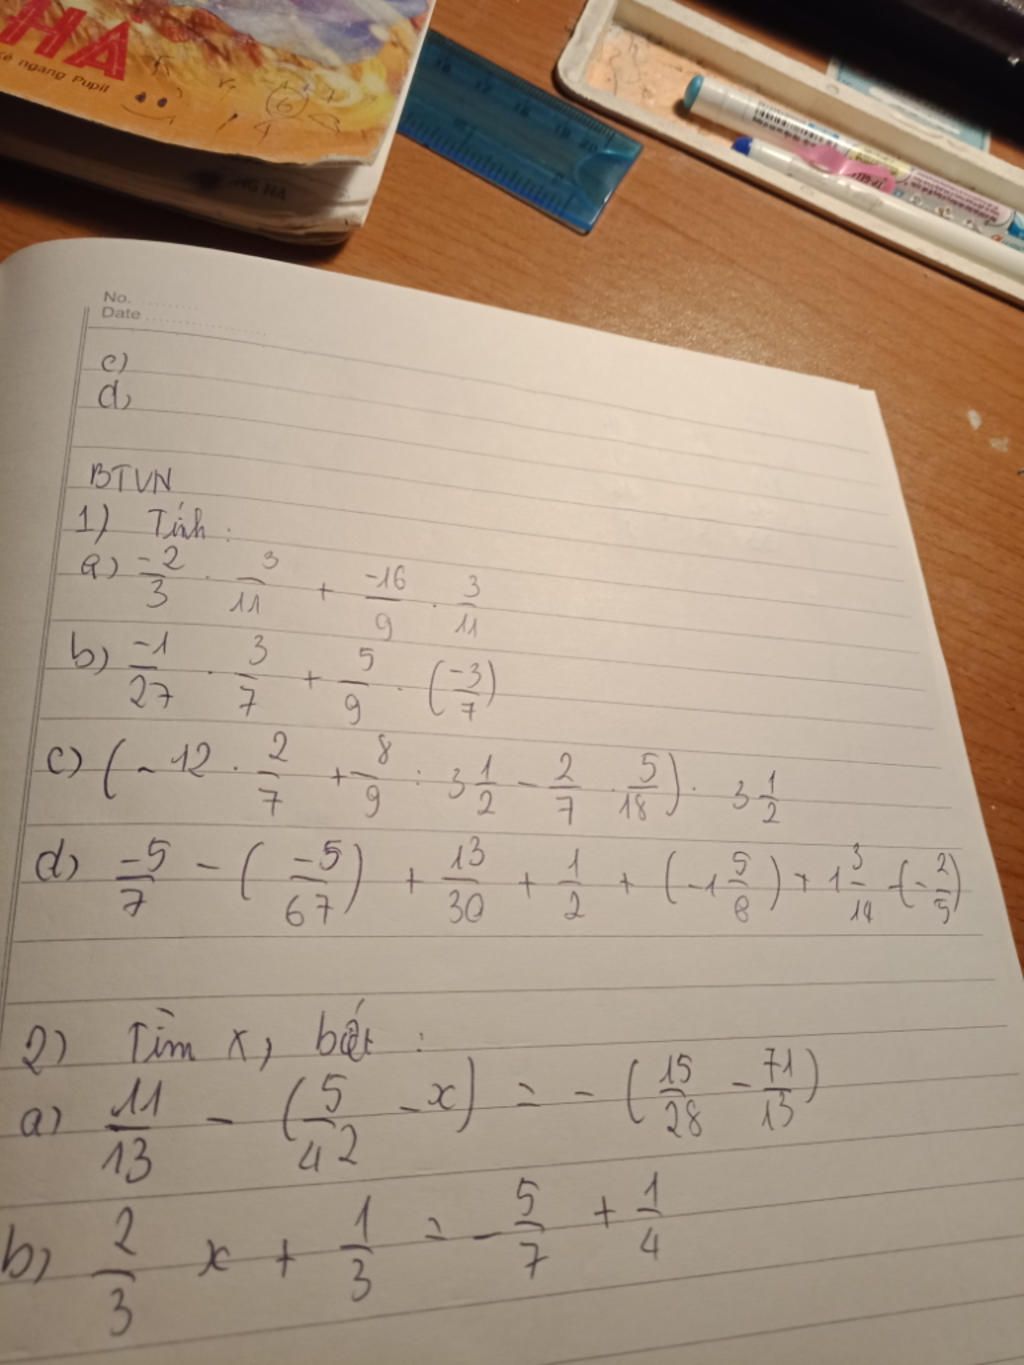 HÀ
kẻ ngang Pupil
No. ..........
Date ....................
c)
d,
BTVN
1) Tính :
a) -2/3 . 3/11 + -16/9 . 3/11
b) -1/27 . 3/7 + 5/9 . (-3/7)
c) (-12 . 2/7 + 8/9 : 3 1/2 - 2/7 . 5/18) . 3 1/2
d) -5/7 - (-5/67) + 13/30 + 1/2 + (-1 5/6) + 1 3/14 - (-2/5)
2) Tìm x, biết :
a) 11/13 - (5/42 - x) = - (15/28 - 71/13)
b) 2/3 x + 1/3 = - 5/7 + 1/4